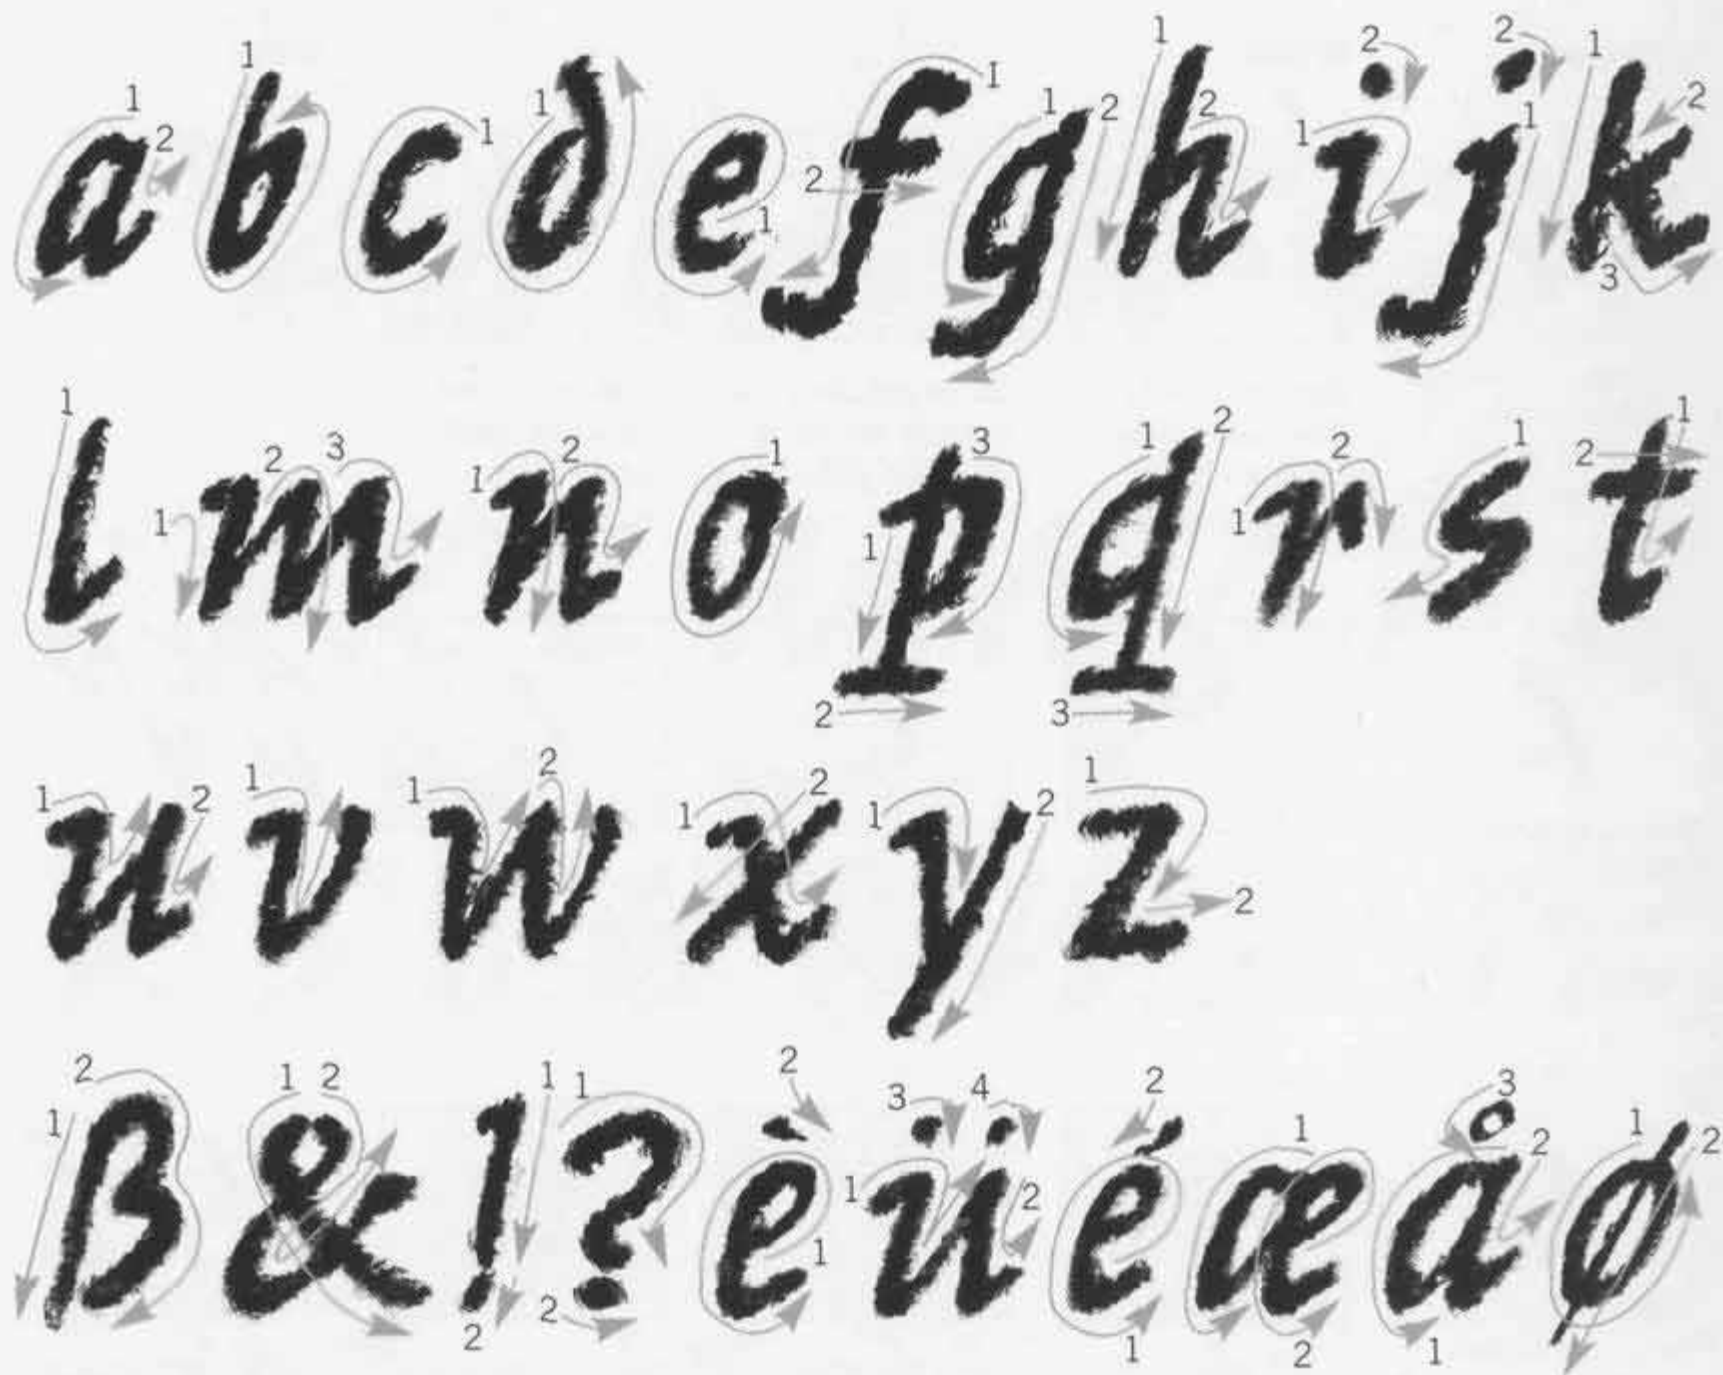 a b c d e f g h i j k
l m n o p q r s t
u v w x y z
ß & ! ? è ü é æ å ø